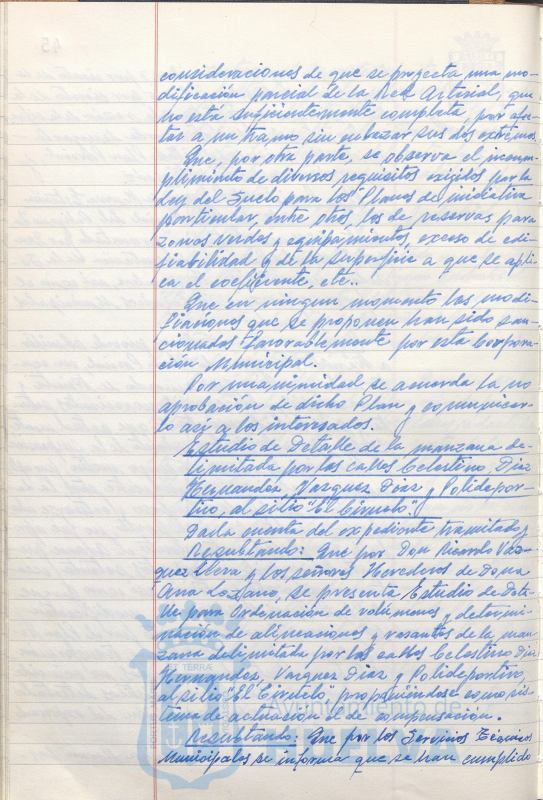 consideraciones de que se proyecta una mo-
dificación parcial de la Red Arterial, que
no está suficientemente completa, por afec-
tar a un tramo sin enlazar sus dos extremos
Que, por otra parte, se observa el incum-
plimiento de diversos requisitos exigidos por la
Ley del Suelo para los Planes de iniciativa
particular, entre otros, los de reservas para
zonas verdes y equipamientos, exceso de edi-
ficabilidad y de la superficie a que se apli-
ca el coeficiente, etc..
Que en ningún momento las modi-
ficaciones que se proponen han sido san-
cionadas favorablemente por esta Corpora-
ción Municipal.
Por unanimidad se acuerda la no
aprobación de dicho Plan y comunicar-
lo así a los interesados.
Estudio de Detalle de la manzana de-
limitada por las calles Celestino Díaz
Hernández, Vázquez Díaz y Polidepor-
tivo, al sitio "El Ciruelo".
Dada cuenta del expediente tramitado y
Resultando: Que por Don Ricardo Váz-
quez y los señores Herederos de Doña
Ana Lozano, se presenta Estudio de Deta-
lle para Ordenación de volúmenes y determi-
nación de alineaciones y rasantes de la man-
zana delimitada por las calles Celestino Díaz
Hernández, Vázquez Díaz y Polideportivo,
al sitio "El Ciruelo", proponiéndose como sis-
tema de actuación el de compensación.
Resultando: Que por los Servicios Técnicos
Municipales se informa que se han cumplido
Ayuntamiento de
HUELVA